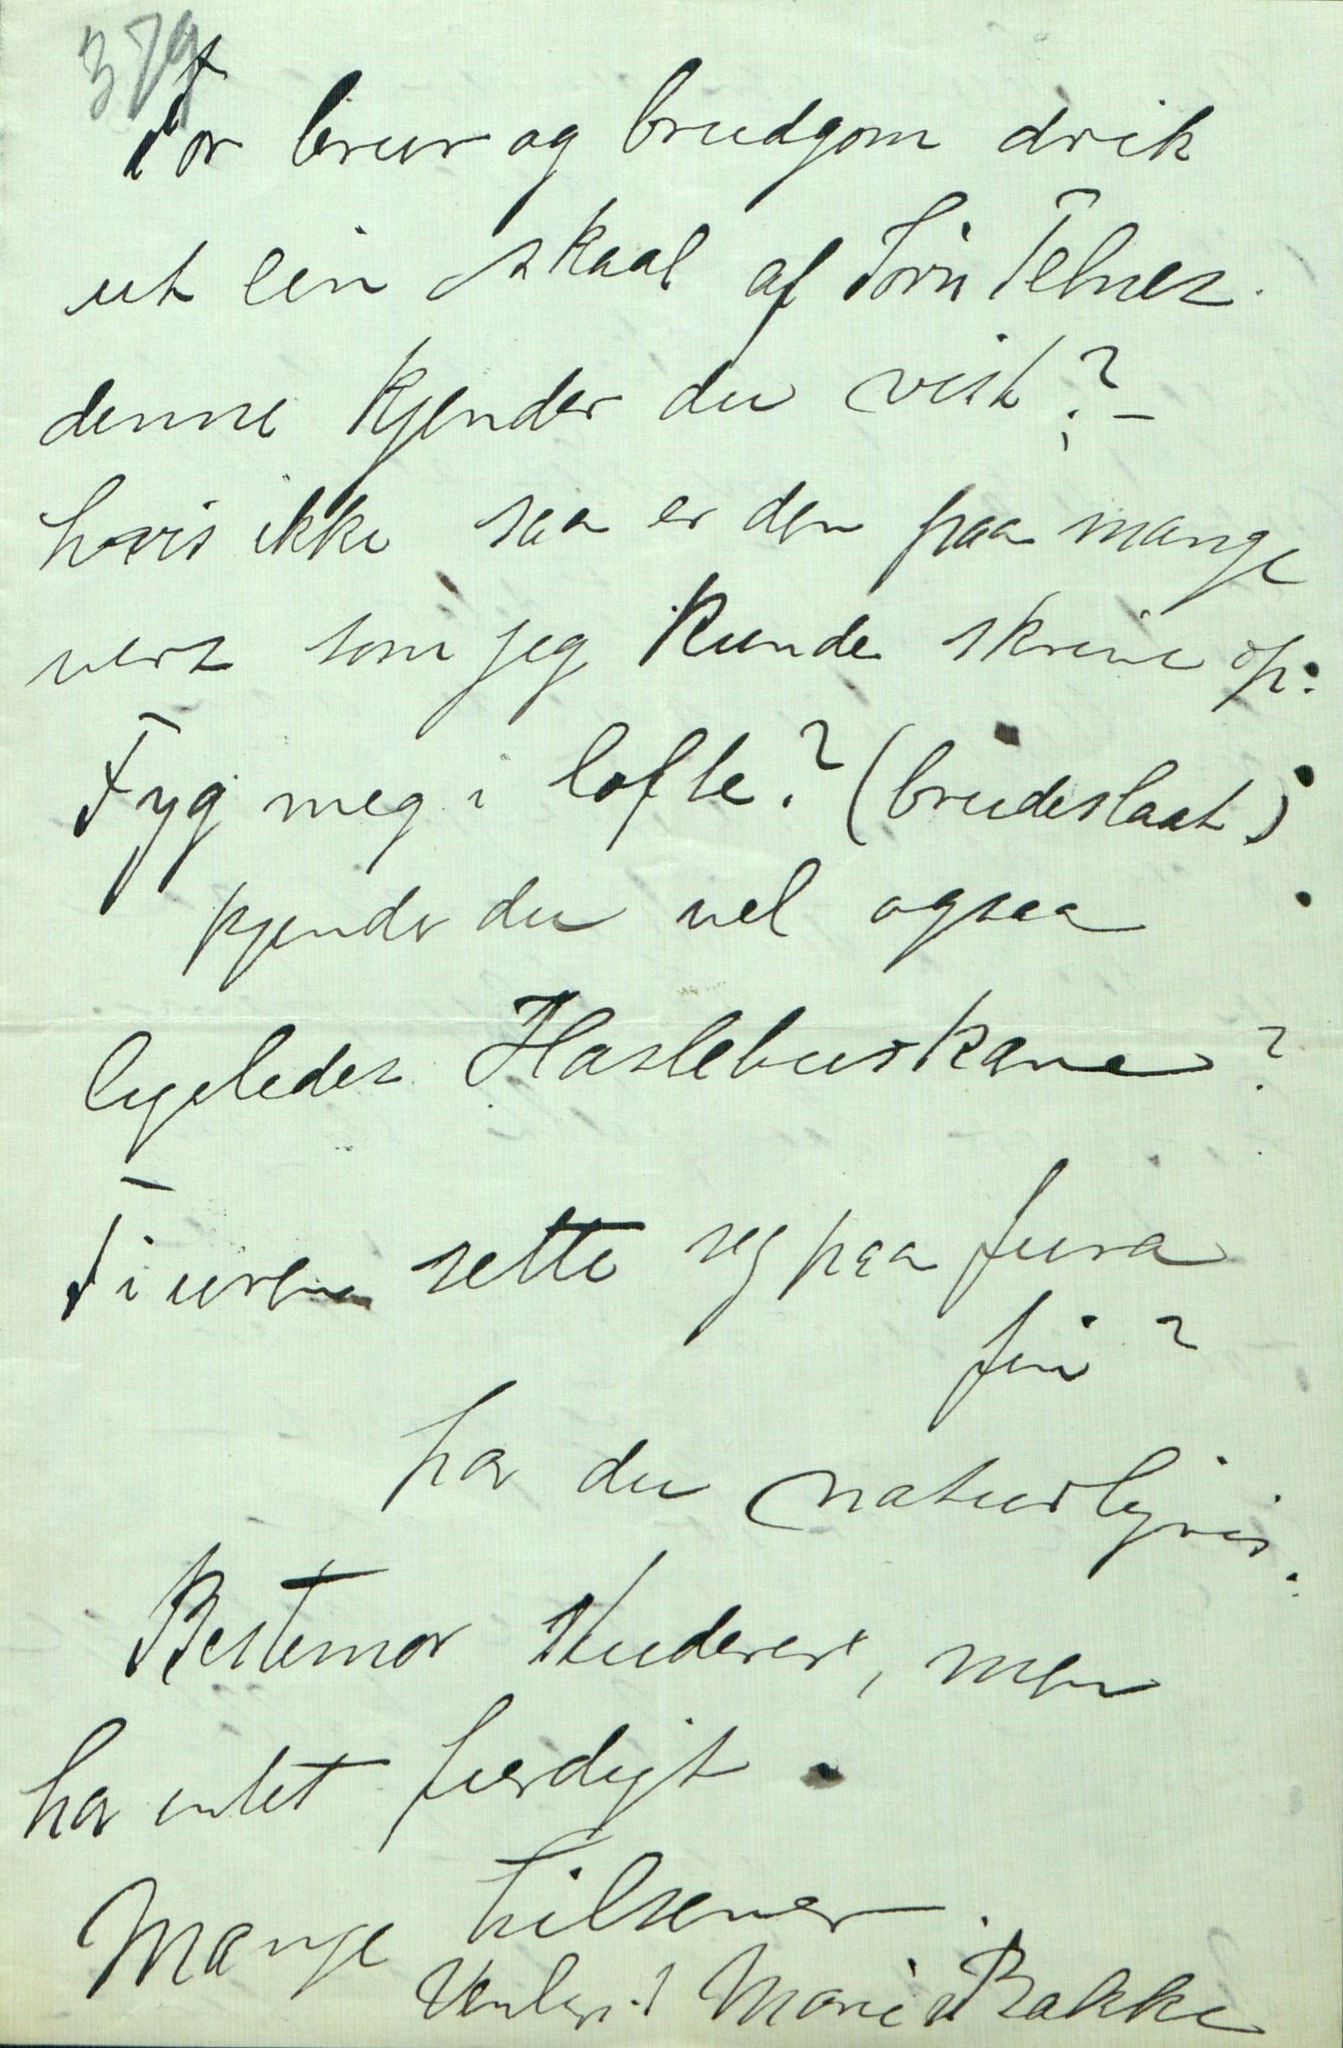 379
For brur og brudgom drik
ut ein skaal af Jörn Telnes.
denne kjender du vist? –
hvis ikke saa er den paa mange
vers som jeg kunde skrive op:
Fyg meg i lofte? (brudeslaat)
kjender du vel ogsaa
ligeledes Haslebuskane?
Tiuren sette seg paa fura
fin?
har du naturligvis.
Bestemor studerer, men
har intet færdigt.
Mange hilsener.
Venligst Marie Bakke